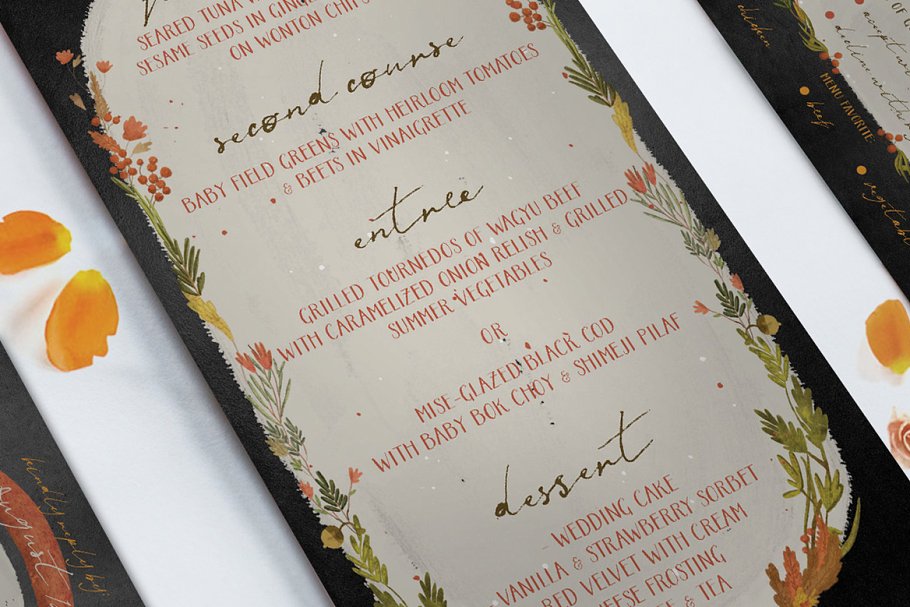 SEARED TUNA
SESAME SEEDS IN
ON WONTON CHIPS
second course
BABY FIELD GREENS WITH HEIRLOOM TOMATOES
& BEETS IN VINAIGRETTE
entree
GRILLED TOURNEDOS OF WAGYU BEEF
WITH CARAMELIZED ONION RELISH & GRILLED
SUMMER VEGETABLES
OR
MISE-GLAZED BLACK COD
WITH BABY BOK CHOY & SHIMEJI PILAF
dessert
WEDDING CAKE
VANILLA & STRAWBERRY SORBET
RED VELVET WITH CREAM
CHEESE FROSTING
& TEA
chicken
MENU FAVORITE
beef
vegetabl
accept
decline with
kindly reply by
august 1